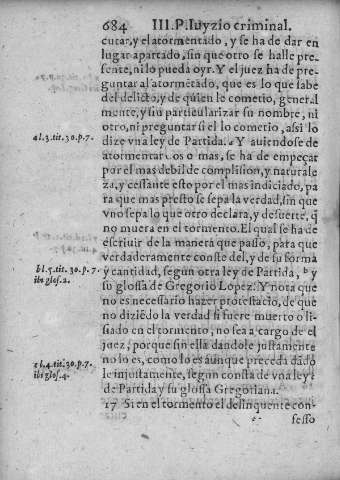 684 III.P. Iuyzio criminal.
cutar, y el atormentado, y se ha de dar en
lugar apartado, sin que otro se halle pre-
sente, ni lo pueda oyr. Y el juez ha de pre-
guntar al atormẽtado, que es lo que sabe
del delicto, y de quien le cometio, general
mente, y sin particularizar su nombre, ni
otro, ni preguntar si el lo cometio, assi lo
a l.3.tit.30.p.7.
dize vna ley de Partida. a Y auiendose de
atormentar dos o mas, se ha de empeçar
por el mas debil de complision, y naturale
za, y cessante esto por el mas indiciado, pa
ra que mas presto se sepa la verdad, sin que
vno sepa lo que otro declara, y desuerte, q̃
no muera en el tormento. El qual se ha de
escriuir de la manera que passo, para que
verdaderamente conste del, y de su forma
b l.5.tit.30.p.7.
ibi glos.2.
y cantidad, segun otra ley de Partida, b y
su glossa de Gregorio Lopez. Y nota que
no es necessario hazer protestaciõ, de que
no diziẽdo la verdad si fuere muerto o li-
siado en el tormento, no sea a cargo de el
juez, porque sin ella dandole justamente
c l.4.tit.30.p.7.
ibi glos.4.
no lo es, como lo es aunque preceda dãdo
le injustamente, segun consta de vna ley c
de Partida y su glossa Gregoriana.
17 Si en el tormento el delinquente con-
fesso